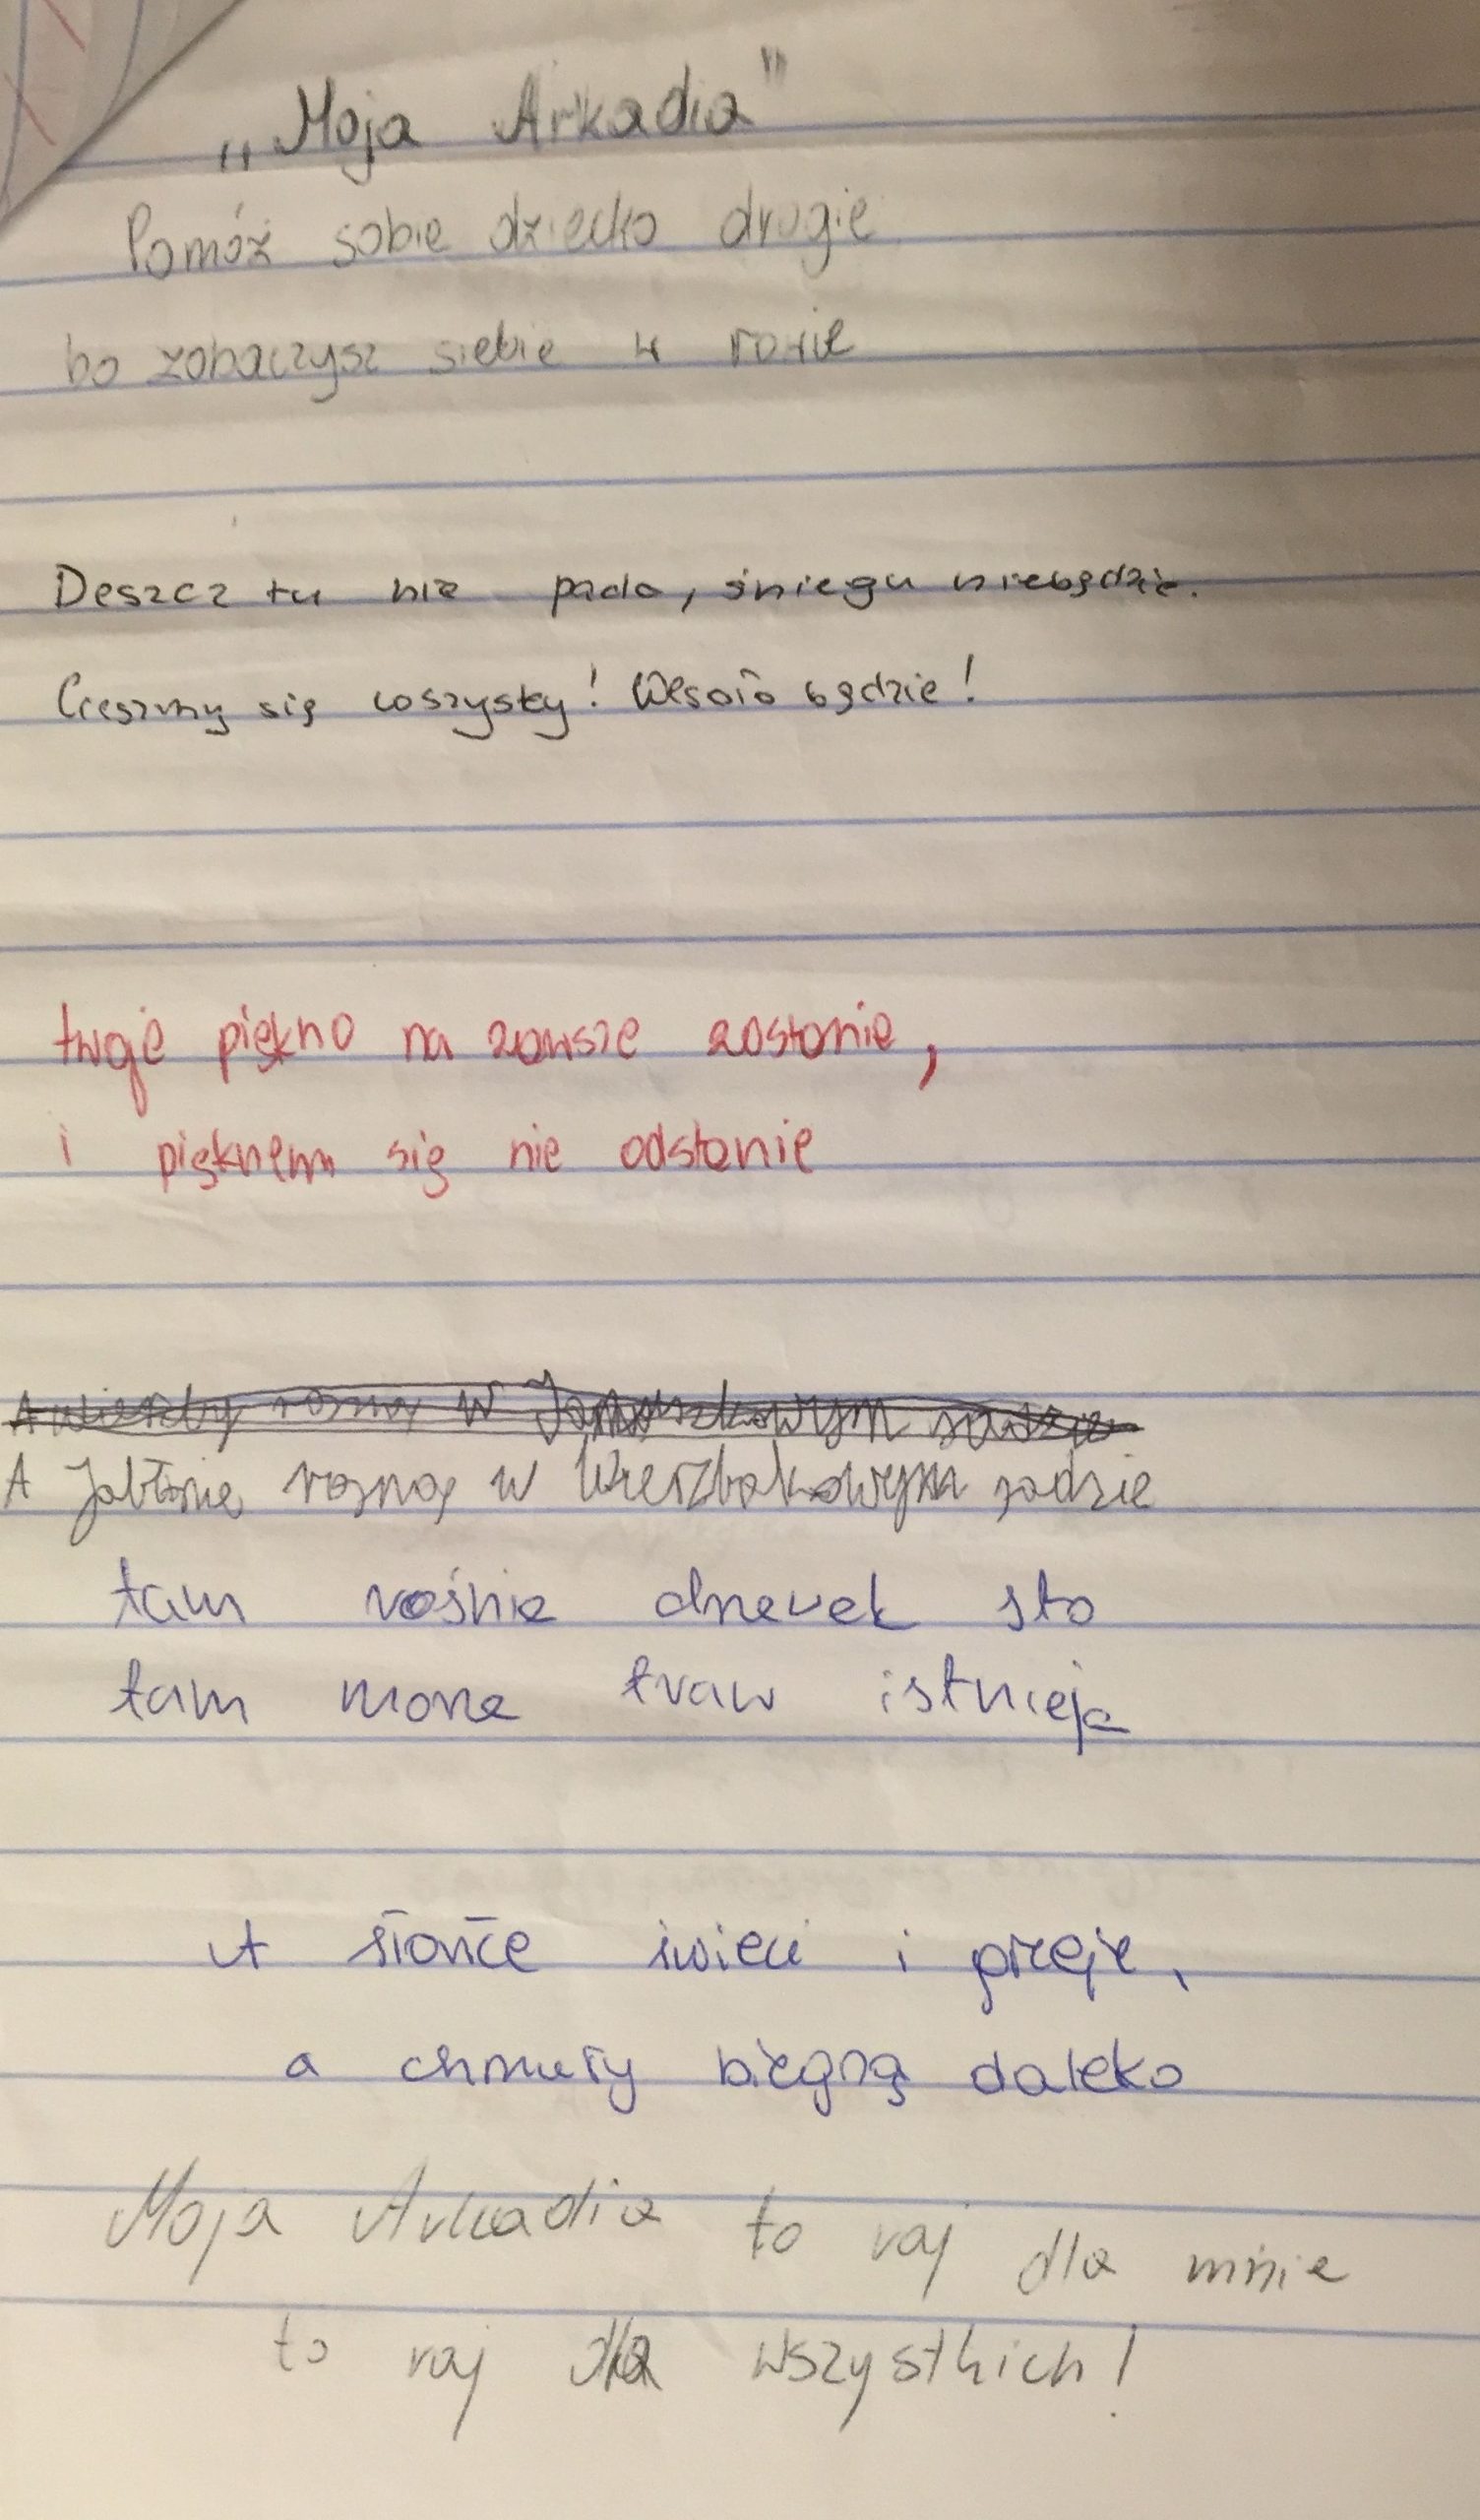 „Moja Arkadia"
Pomóż sobie dziecko drogie
bo zobaczysz siebie w rowie
Deszcz tu nie pada, śniegu niebędzie.
Cieszmy się wszyscy! Wesoło będzie!
twoje piękno na zawsze zostanie,
i pięknem się nie odstanie
A wierzby rosną w
A Jabłonie rosną w Wierzbakowym sadzie
tam rośnie drzewek sto
tam morze traw istnieje
A słońce świeci i grzeje,
a chmury biegną daleko
Moja Arkadia to raj dla mnie
to raj dla wszystkich!